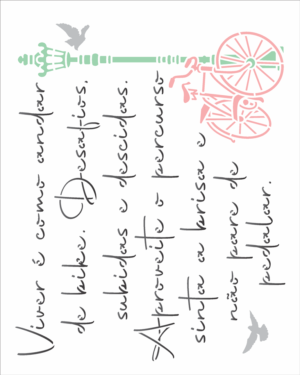 Viver é como andar
de bike. Desafios,
subidas e descidas.
Aproveite o percurso
sinta a brisa e
não pare de
pedalar.